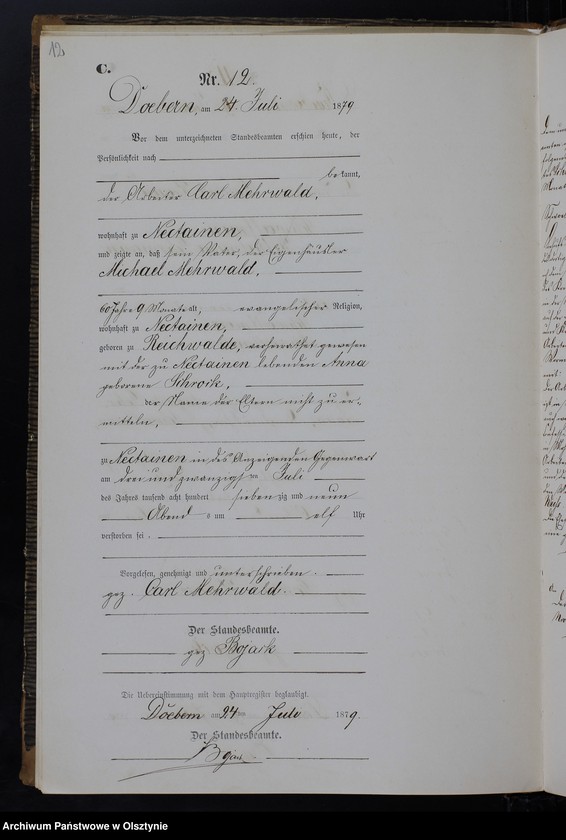 12
C.
Nr. 12.
Doebern, am 24 Juli 1879
Vor dem unterzeichneten Standesbeamten erschien heute, der
Persönlichkeit nach
bekannt,
der Arbeiter Carl Mehrwald,
wohnhaft zu Nectainen,
und zeigte an, daß sein Vater, der Eigenhäusler
Michael Mehrwald,
60 Jahre 9 Monate alt, evangelischer Religion,
wohnhaft zu Nectainen,
geboren zu Reichwalde, verheirathet gewesen
mit der zu Nectainen lebenden Anna
geborene Schrock,
der Name der Eltern nicht zu er-
mitteln,
zu Nectainen in des Anzeigenden Gegenwart
am drei und zwanzigsten Juli
des Jahres tausend acht hundert siebenzig und neun
Abends um elf Uhr
verstorben sei.
Vorgelesen, genehmigt und unterschrieben.
gez. Carl Mehrwald.
Der Standesbeamte.
gez Bojark
Die Uebereinstimmung mit dem Hauptregister beglaubigt.
Döbern am 24ten Juli 1879.
Der Standesbeamte.
Archiwum Państwowe w Olsztynie